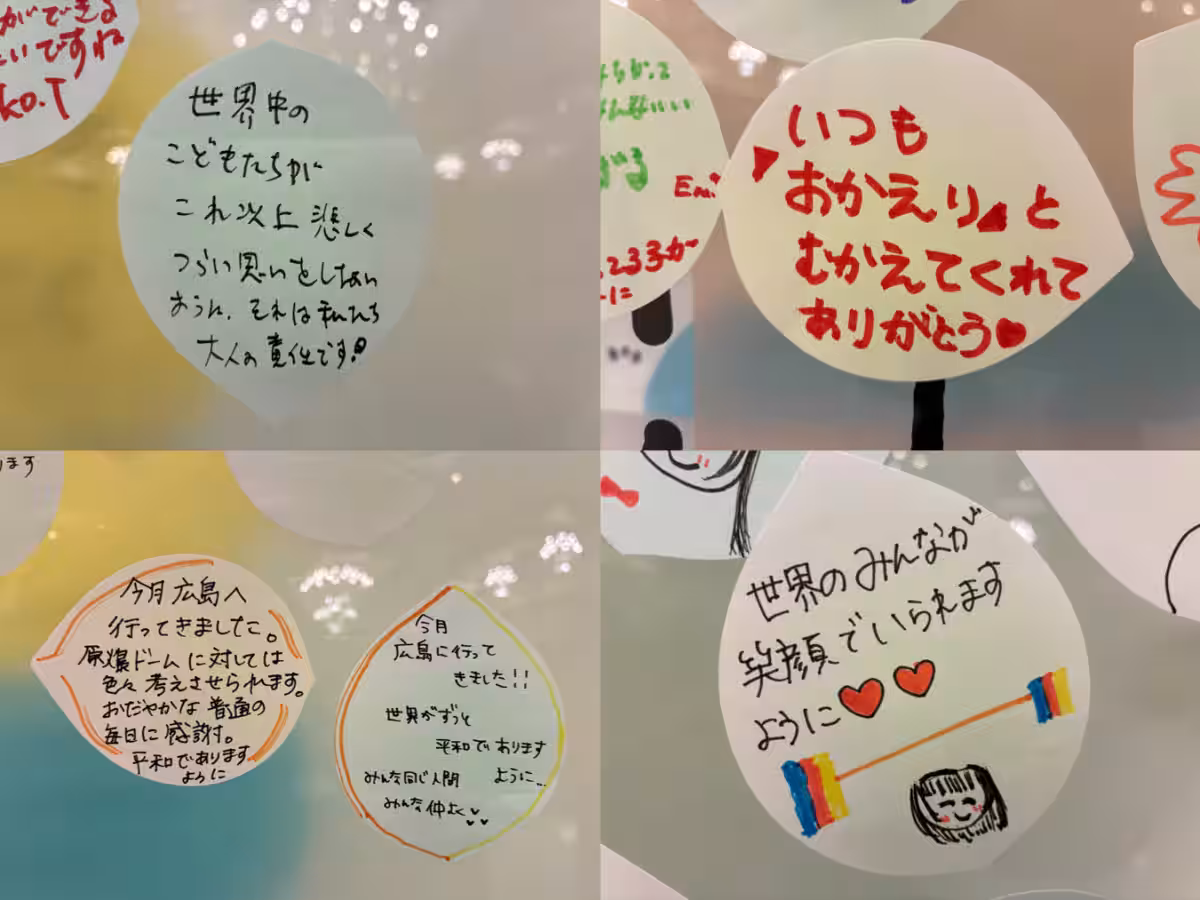 がができる
いですね
ko.T
世界中の
こどもたちが
これ以上悲しく
つらい思いをしない
ように、それは私たち
大人の責任です!
んなちがって
みんないい
がる
Emi
233が
いつも
「おかえり」と
むかえてくれて
ありがとう♥
ります
今月広島へ
行ってきました。
原爆ドームに対しては
色々考えさせられます。
おだやかな普通の
毎日に感謝。
平和であります
ように
今月
広島に行って
きました!!
世界がずっと
平和であります
ように…
みんな同じ人間
みんな仲よく♥♥
世界のみんなが
笑顔でいられます
ように♥♥